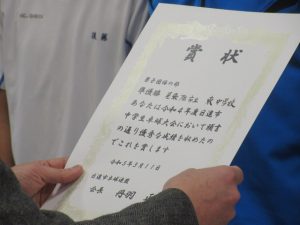 後藤
賞状
男子団体の部
準優勝
中学校
あなたは令和4年度日進市
中学生卓球大会において頭書
の通り優秀な成績を収めたの
でこれを賞します
令和5年3月11日
日進市卓球連盟
会長 丹羽